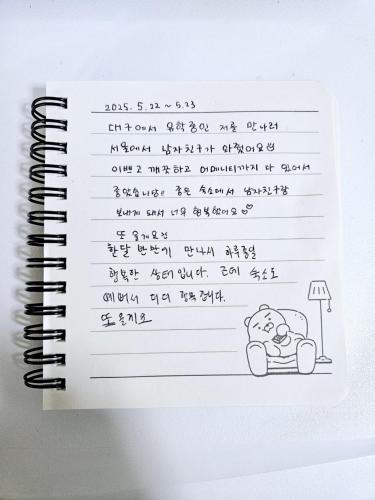 2025. 5.22 ~ 5.23
대구에서 유학중인 저를 만나러
서울에서 남자친구가 와줬어요
이쁘고 깨끗하고 어메니티까지 다 있어서
좋았습니당!! 좋은 숙소에서 남자친구랑
보내게 돼서 너무 행복했어요
또 올게요
한달 만나서 하루종일
행복한 상태입니다. 근데 숙소도
예뻐서 더더 행복합니다.
또 올게요